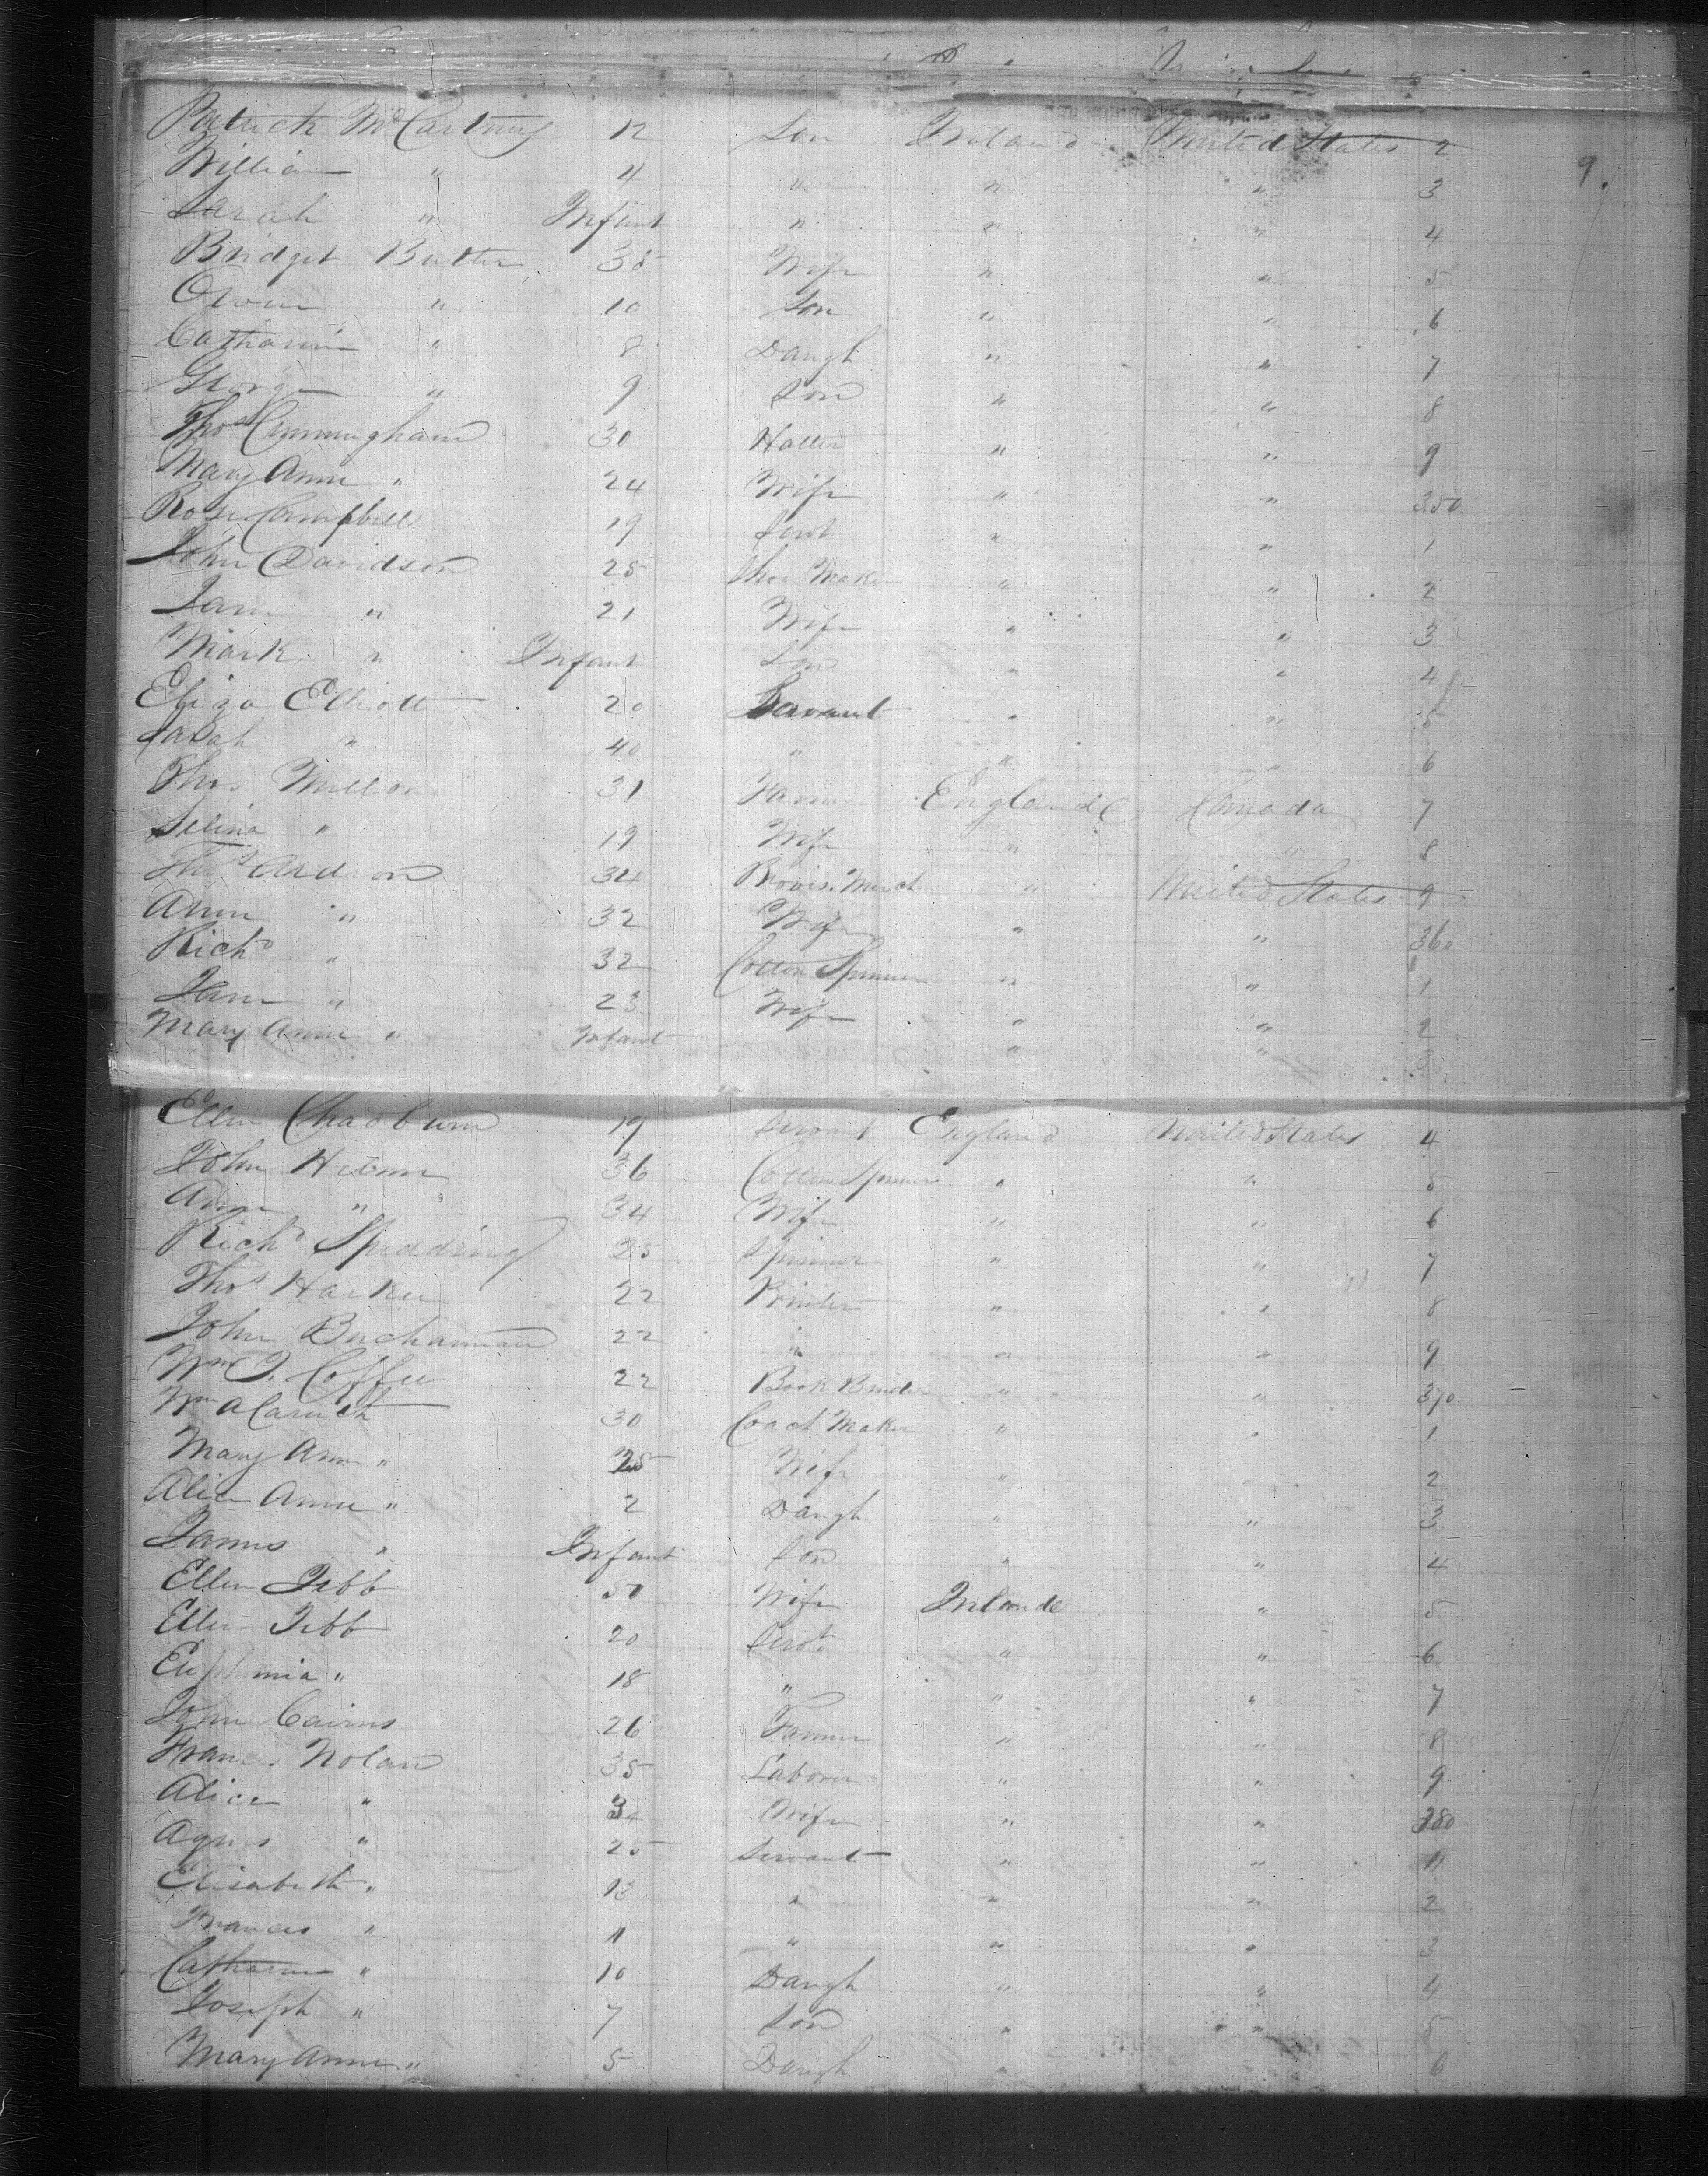 9.
Patrick McCartney 12 Son Ireland United States 2
William " 4 " " " 3
Sarah " Infant " " " 4
Bridget Butler 35 Wife " " 5
Owen " 10 Son " " 6
Catharine " 8 Daugh " " 7
George " 9 Son " " 8
Thos Cunningham 30 Hatter " " 9
Mary Anne " 24 Wife " " 350
Rose Campbell 19 Servt " " 1
John Davidson 25 Shoe Maker " " 2
Jane " 21 Wife " " 3
Mark " Infant Son " " 4
Eliza Elliott 20 Servant " " 5
Sarah " 40 " " " 6
Thos 31 Farmer England Canada 7
Selina " 19 Wife " " 8
Thos Ardron 34 Provis. Merch " United States 9
Anne " 32 Wife " " 360
Richd " 32 Cotton Spinner " " 1
Jane " 23 Wife " " 2
Mary Anne " Infant " " 3
Ellen Chadburn 19 Servant England United States 4
John 36 Cotton Spinner " " 5
Anne " 34 Wife " " 6
Richd Spedding 25 Spinner " " 7
Thos Harker 22 Printer " " 8
John Buchannan 22 " " " 9
Wm J. Coffee 22 Book Binder " " 370
Wm A 30 Coach Maker " " 1
Mary Ann " 25 Wife " " 2
Alice Anne " 2 Daugh " " 3
James " Infant Son " " 4
Ellen Tebb 50 Wife Irlande " 5
Ellen Tebb 20 Servt " " 6
Euphemia " 18 " " " 7
John Cairns 26 Farmer " " 8
Nolan 35 Laborer " " 9
Alice " 34 Wife " " 380
Agnes " 25 Servant " " 1
Elisabeth " 13 " " " 2
Frances " 11 " " " 3
Catharine " 10 Daugh " " 4
Joseph " 7 Son " " 5
Mary Anne " 5 Daugh " " 6